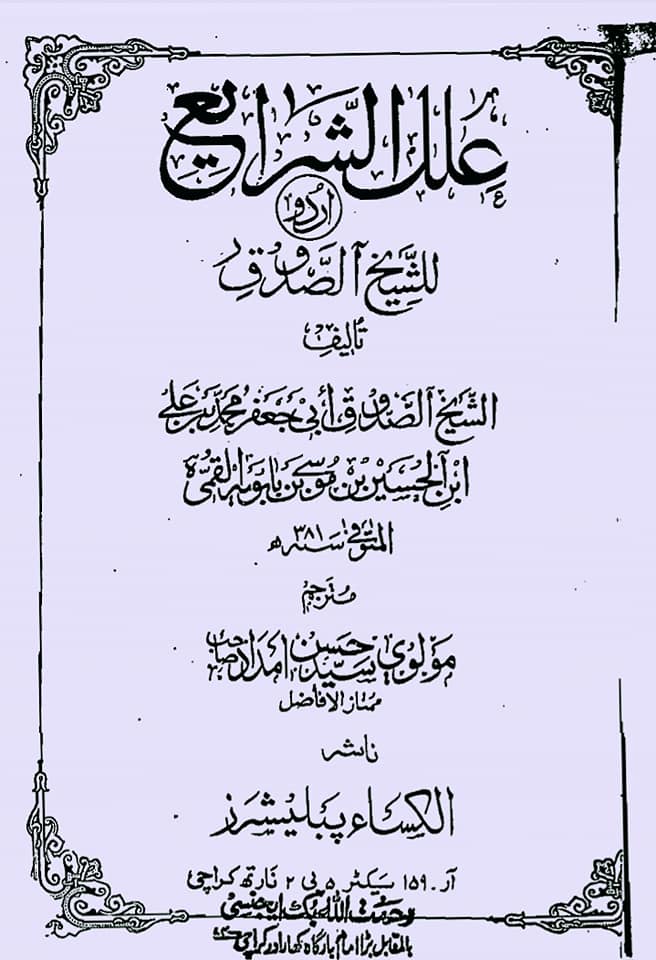 علل الشرایع
اردو
للشیخ الصدوق
تالیف
الشیخ الصدوق أبی جعفر محمد بن علی
ابن الحسین بن موسی بن بابویہ القمی
المتوفی سنہ ۳۸۱ھ
مترجم
مولوی سید حسن امداد صاحب
ممتاز الافاضل
ناشر
الکساء پبلیشرز
آر۔ ۱۵۹ سیکٹر ۵ بی ۲ نارتھ کراچی
رحمت اللہ بک ایجنسی
بالمقابل بڑا امام بارگاہ کھارادر کراچی